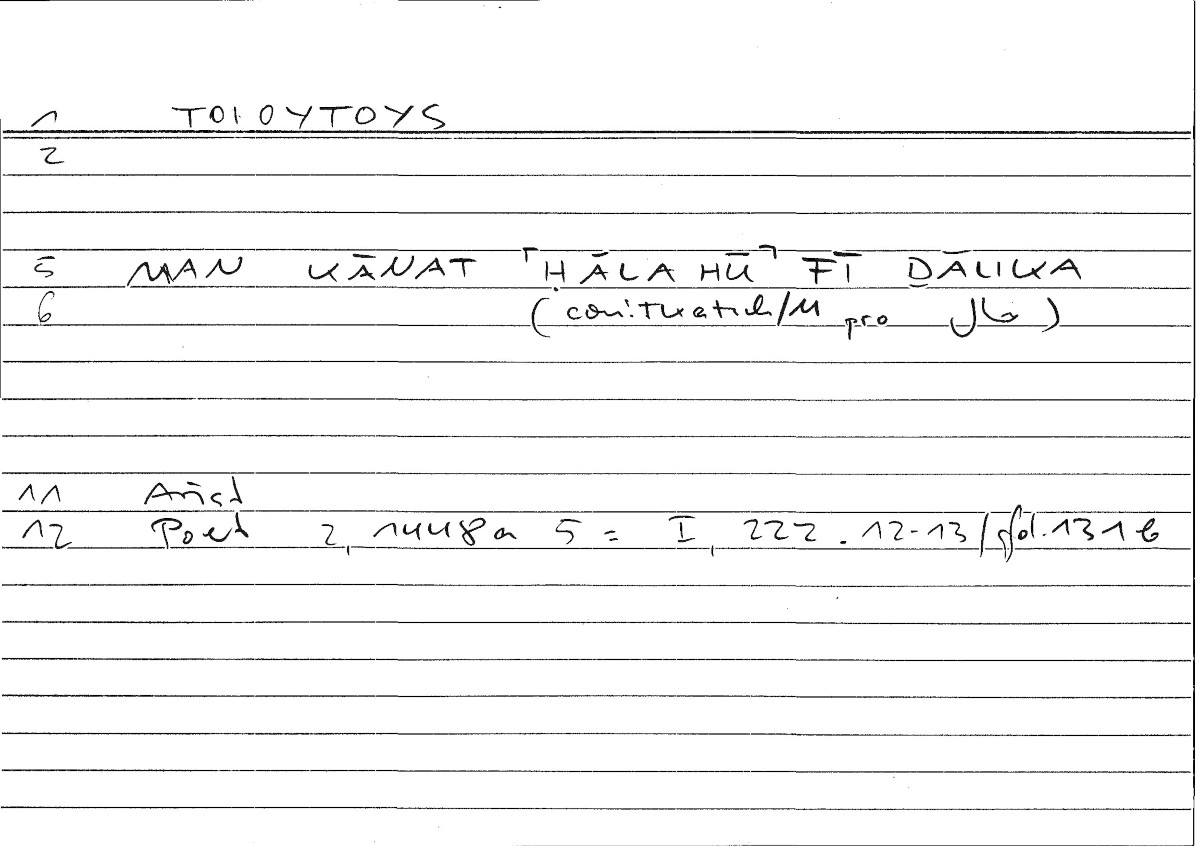 1 TOIOYTOYS
2
5 MAN KĀNAT ⌜ḤĀLAHŪ⌝ FĪ ḎĀLIKA
6 (conj. Tkatsch/M pro حال)
11 Arist
12 Poet 2, 1448a 5 = I, 222.12-13/fol. 131b